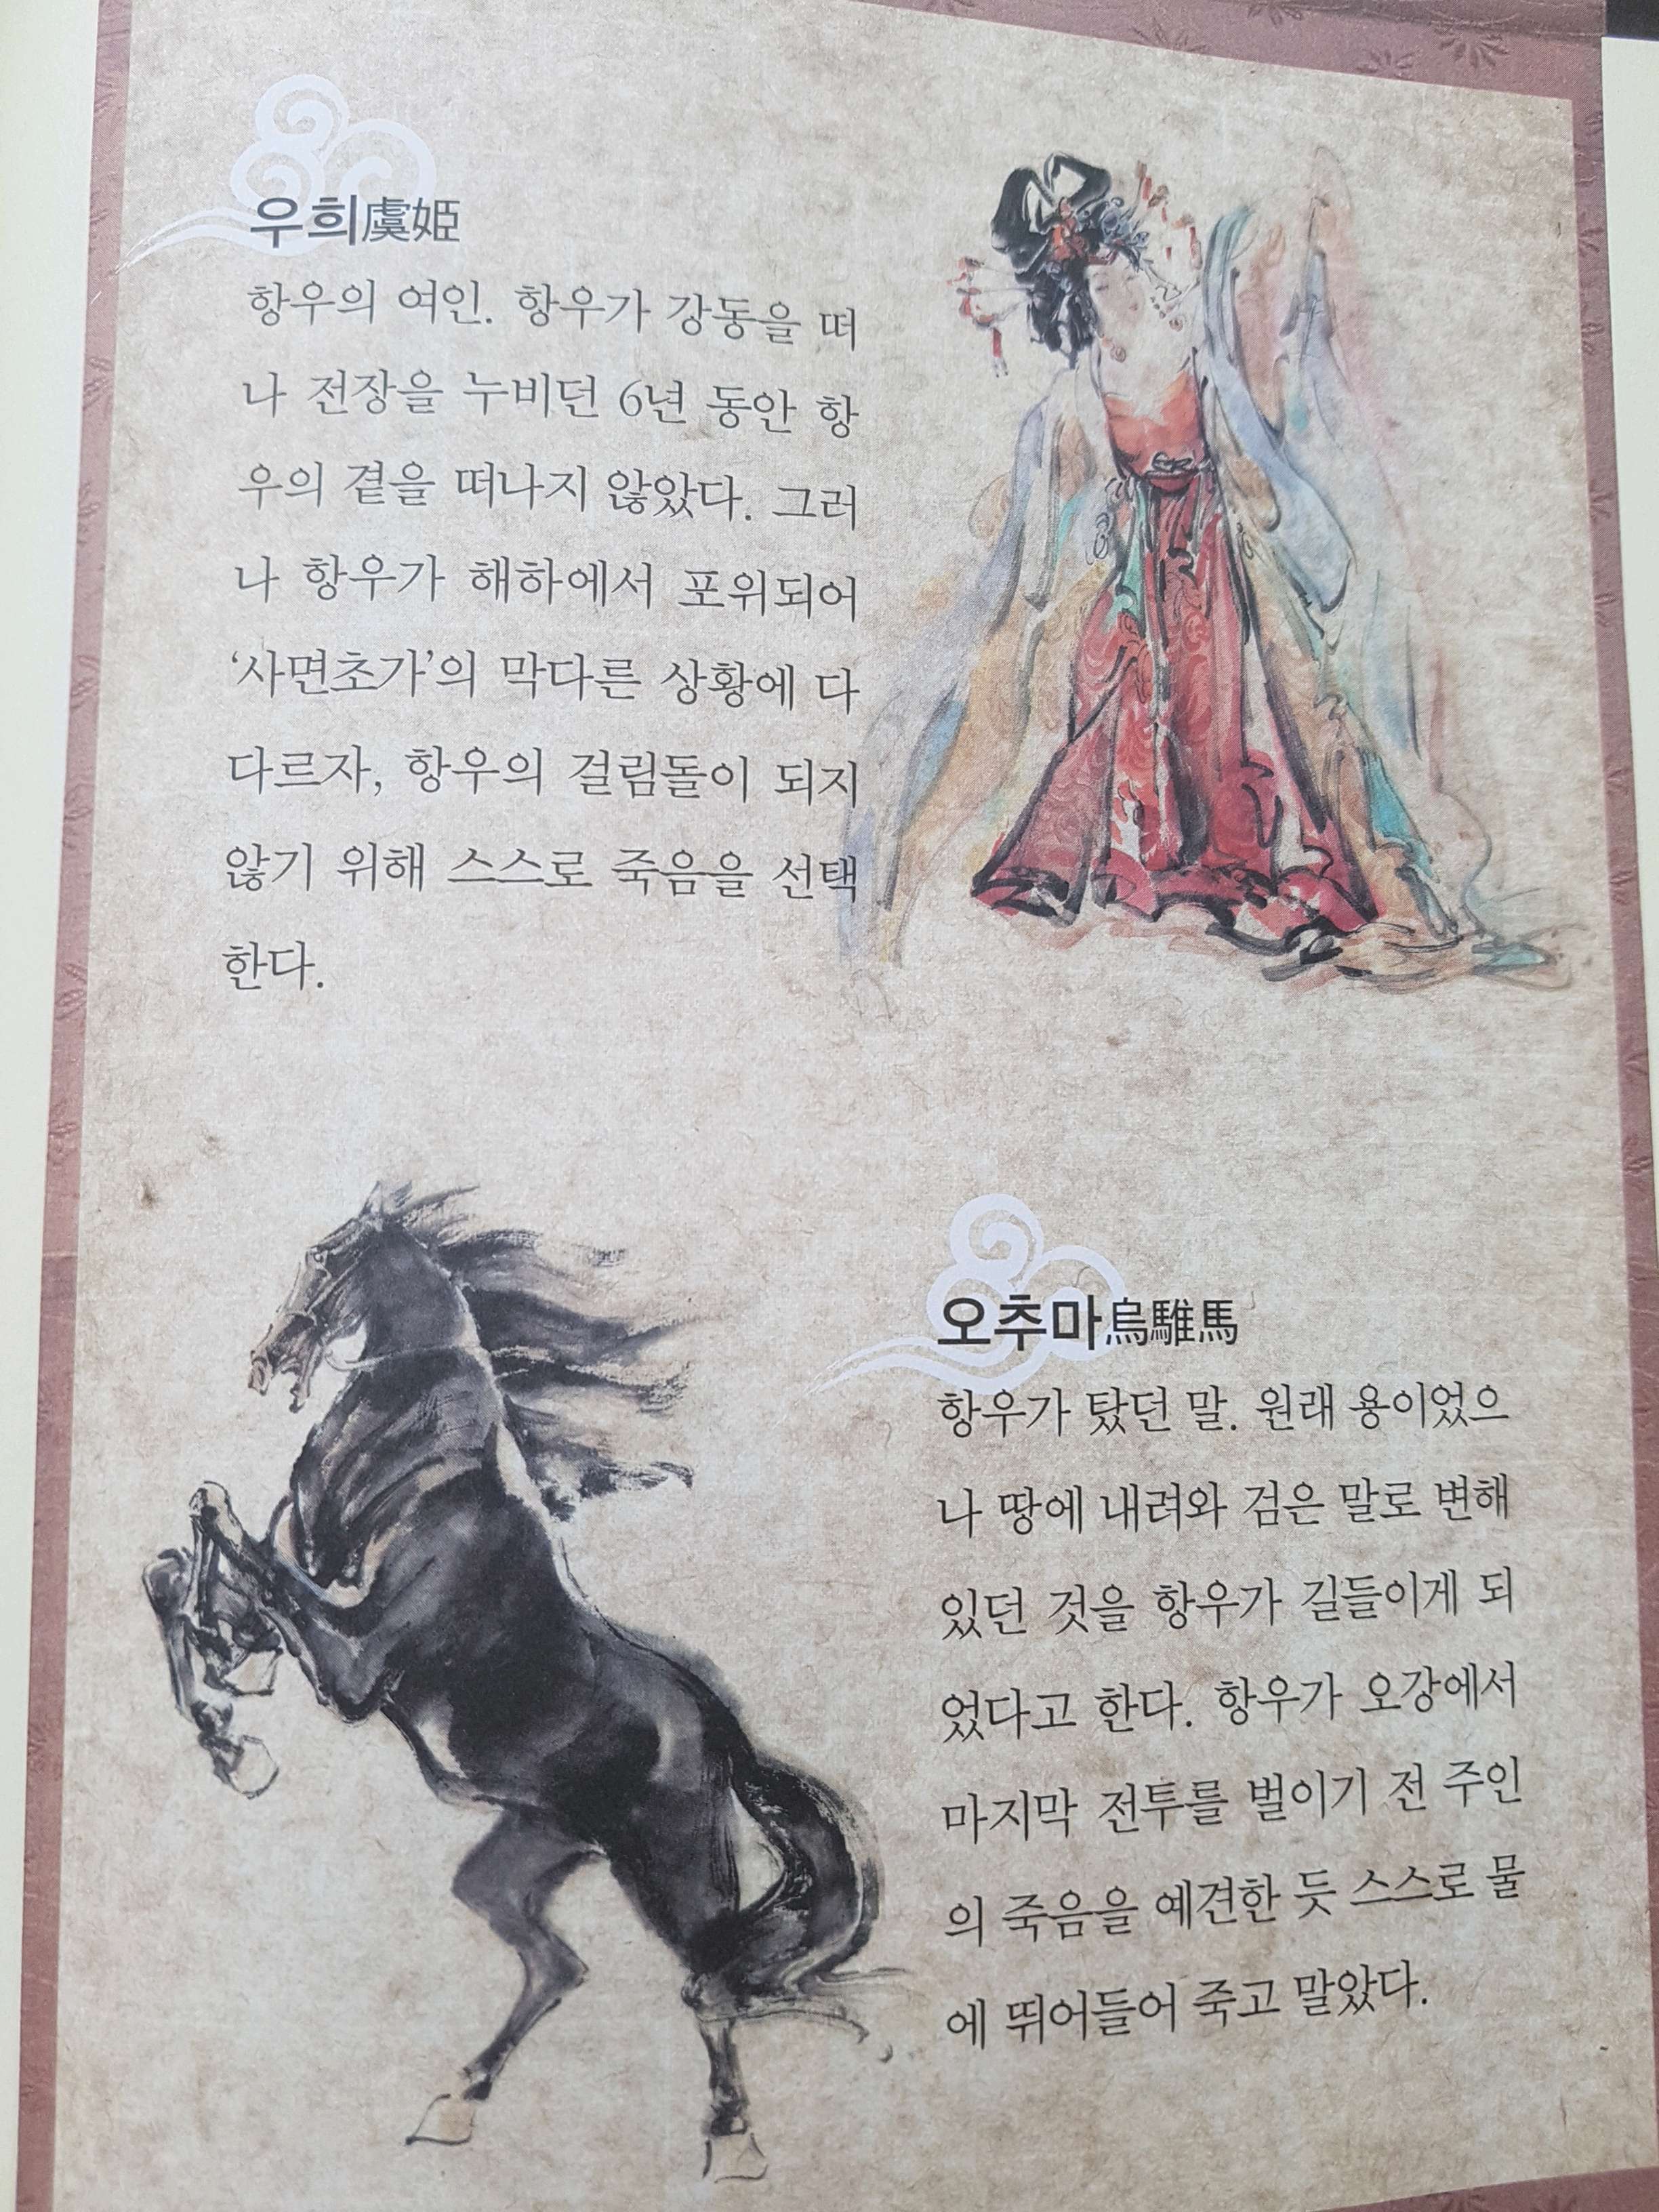 우희虞姬
항우의 여인. 항우가 강동을 떠
나 전장을 누비던 6년 동안 항
우의 곁을 떠나지 않았다. 그러
나 항우가 해하에서 포위되어
‘사면초가’의 막다른 상황에 다
다르자, 항우의 걸림돌이 되지
않기 위해 스스로 죽음을 선택
한다.
오추마烏騅馬
항우가 탔던 말. 원래 용이었으
나 땅에 내려와 검은 말로 변해
있던 것을 항우가 길들이게 되
었다고 한다. 항우가 오강에서
마지막 전투를 벌이기 전 주인
의 죽음을 예견한 듯 스스로 물
에 뛰어들어 죽고 말았다.